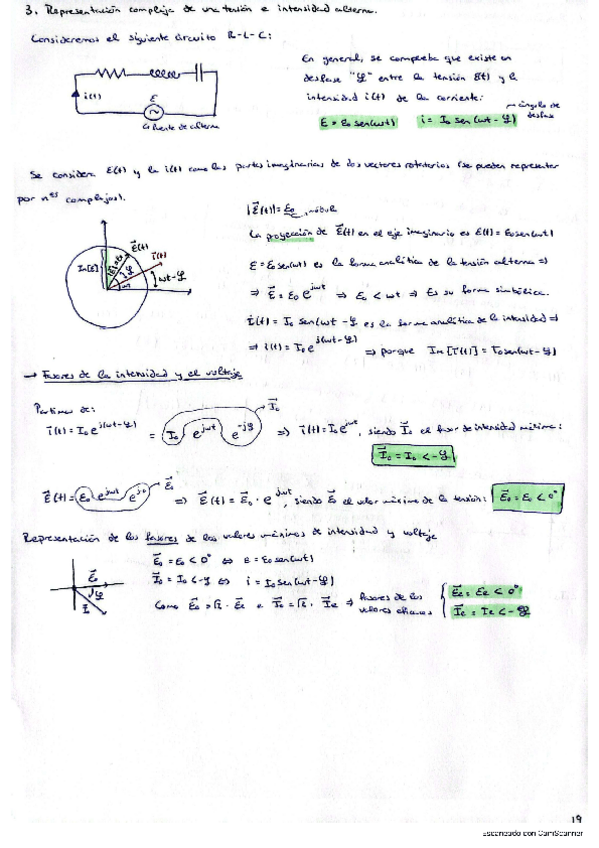 3. Representación compleja de una tensión e intensidad alterna.
Consideremos el siguiente circuito R-L-C:
En general, se comprueba que existe un
desfase "φ" entre la tensión ε(t) y la
intensidad i(t) de la corriente:
ángulo de desfase
ε = ε₀ sen(ωt) i = I₀ sen(ωt - φ)
i(t)
ε
fuente de alterna
Se considera ε(t) y la i(t) como las partes imaginarias de dos vectores rotatorios (se pueden representar
por nºs complejos).
|ε⃗(t)| = ε₀, módulo
La proyección de ε⃗(t) en el eje imaginario es ε(t) = ε₀ sen(ωt)
ε = ε₀ sen(ωt) es la forma analítica de la tensión alterna ⇒
⇒ ε⃗ = ε₀ e^jωt ⇒ ε₀ < ωt ⇒ Es su forma simbólica.
i(t) = I₀ sen(ωt - φ) es la forma analítica de la intensidad ⇒
⇒ i(t) = I₀ e^j(ωt-φ) ⇒ porque Im[i⃗(t)] = I₀ sen(ωt - φ)
Im[ε]
ε⃗(t)
i⃗(t)
φ
ωt - φ
→ Fasores de la intensidad y el voltaje
Partimos de:
i⃗(t) = I₀ e^j(ωt-φ) = I₀ e^jωt e^-jφ ⇒ i⃗(t) = I⃗₀ e^jωt, siendo I⃗₀ el fasor de intensidad máxima:
I⃗₀
I⃗₀ = I₀ < -φ
ε⃗(t) = ε₀ e^jωt e^j0 ⇒ ε⃗(t) = ε⃗₀ · e^jωt, siendo ε⃗ el valor máximo de la tensión: ε⃗₀ = ε₀ < 0°
ε⃗₀
Representación de los fasores de los valores máximos de intensidad y voltaje
ε⃗₀ = ε₀ < 0° ⇔ ε = ε₀ sen(ωt)
I⃗₀ = I₀ < -φ ⇔ i = I₀ sen(ωt - φ)
Como ε⃗₀ = √2 · ε⃗e e I⃗₀ = √2 · I⃗e ⇒ fasores de los valores eficaces
ε⃗e = εe < 0°
I⃗e = Ie < -φ
ε⃗₀
φ
I⃗
19
Escaneado con CamScanner